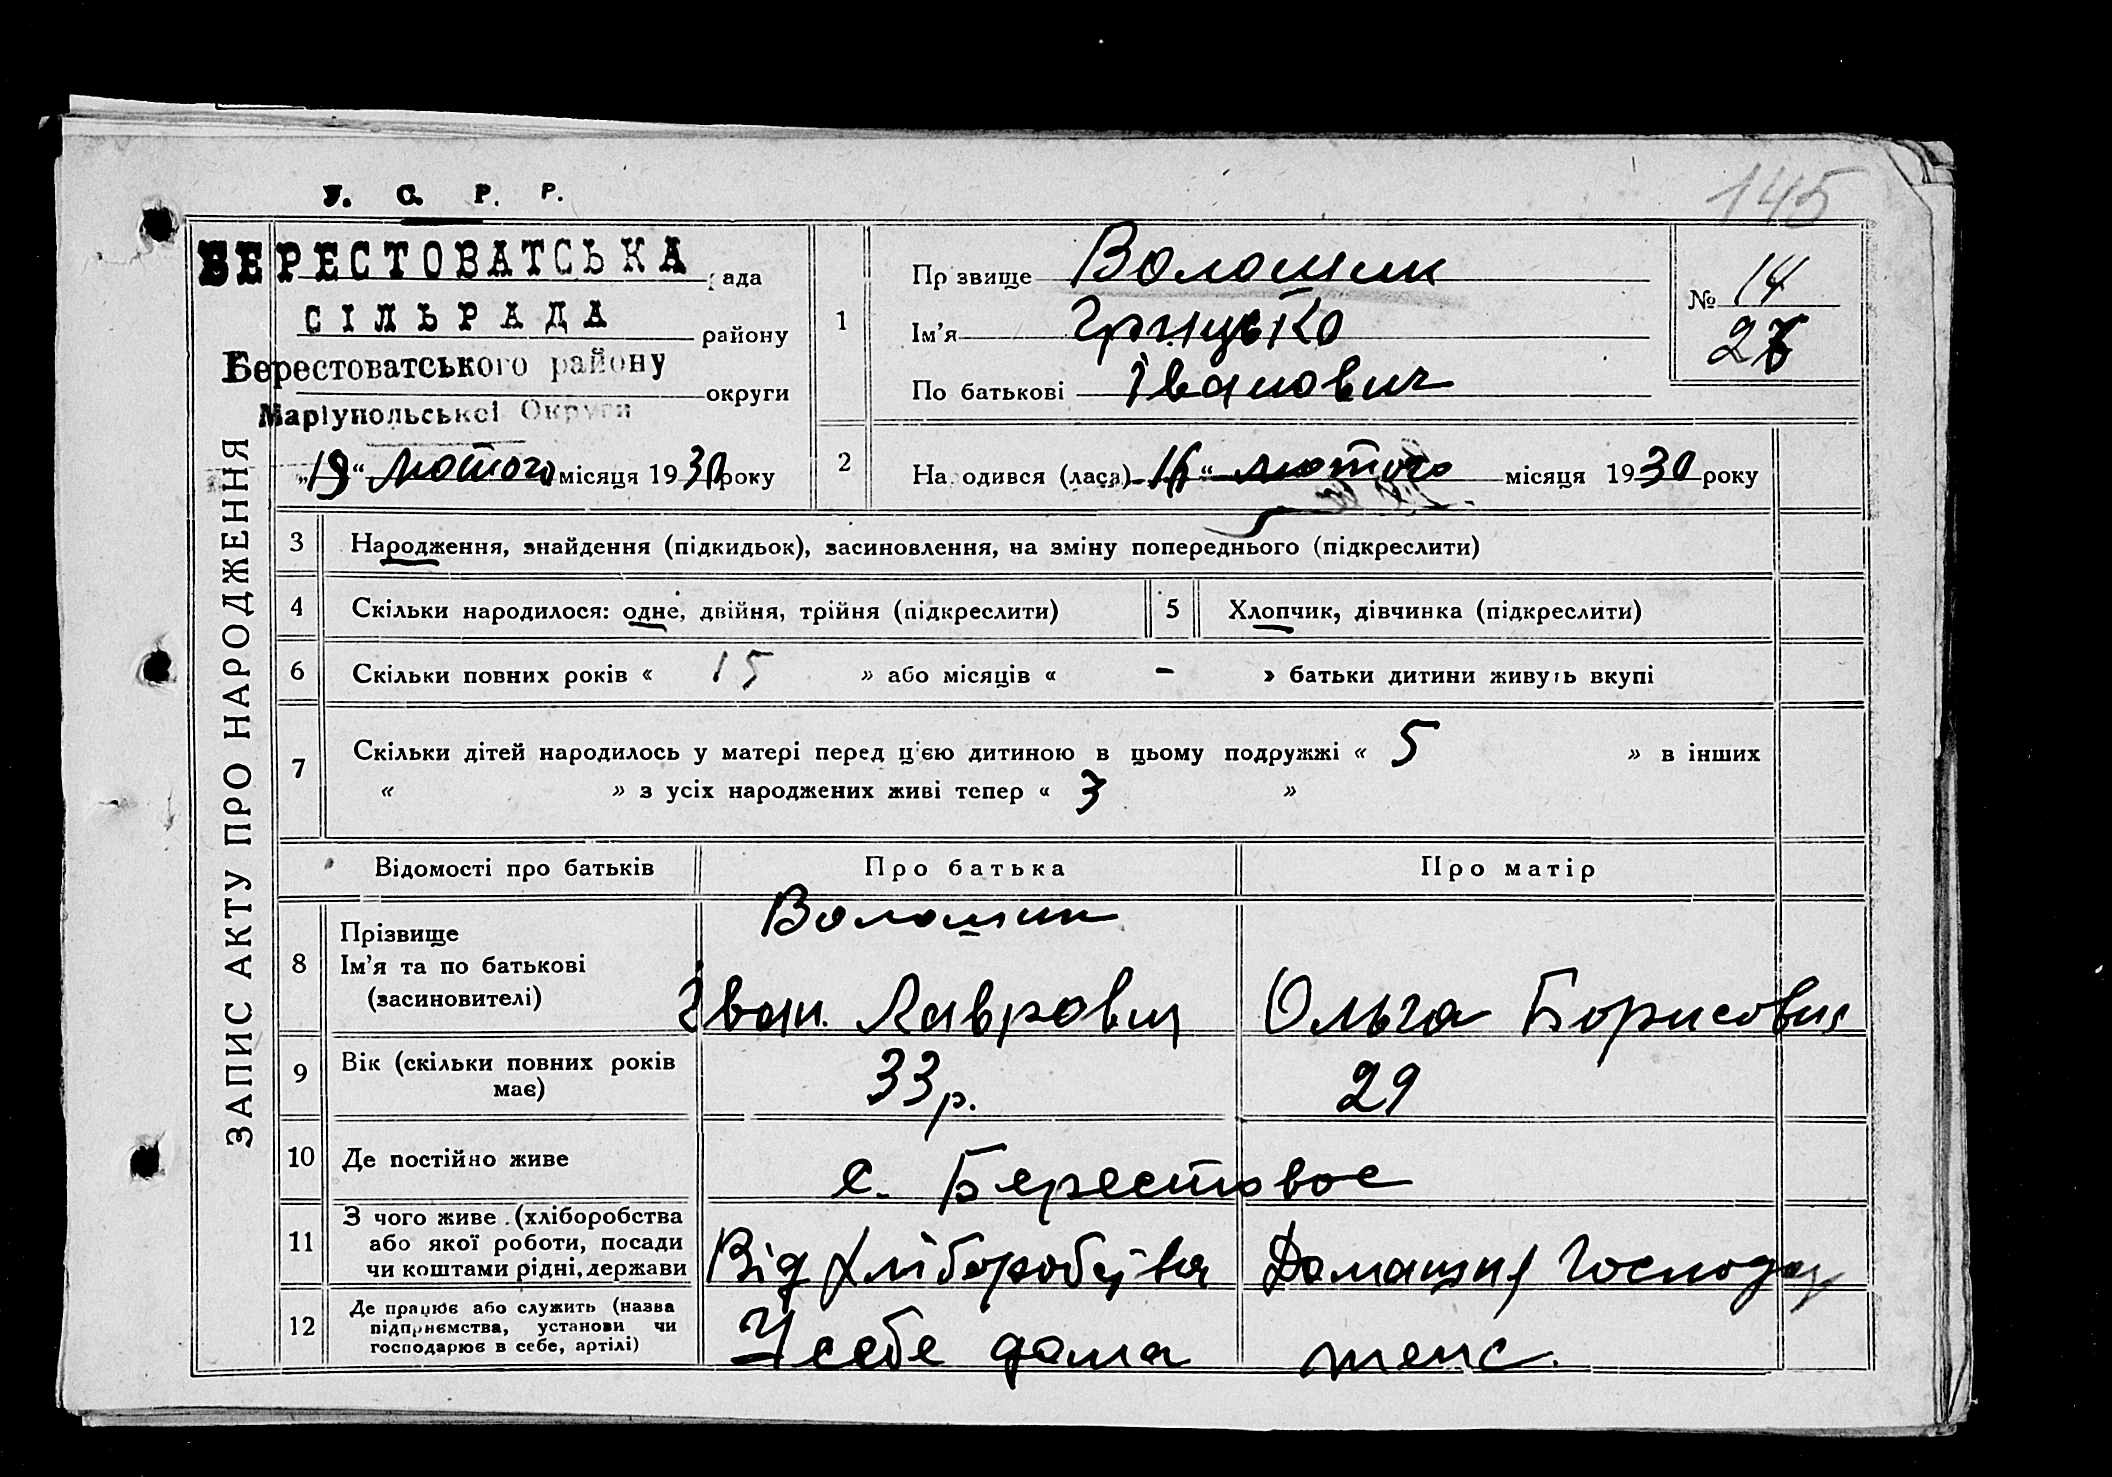 145
У. С. Р. Р.
БЕРЕСТОВАТСЬКА рада
СІЛЬРАДА району
Берестоватського району
округи
Маріупольської Округи
„19“ лютого місяця 1930 року
ЗАПИС АКТУ ПРО НАРОДЖЕННЯ
1
Прізвище Волошин
Ім’я Грицько
По батькові Іванович
№ 14
2
Народився (лася) „16“ лютого місяця 1930 року
3 Народження, знайдення (підкидьок), засиновлення, на зміну попереднього (підкреслити)
4 Скільки народилося: одне, двійня, трійня (підкреслити) 5 Хлопчик, дівчинка (підкреслити)
6 Скільки повних років « 15 » або місяців « - » батьки дитини живуть вкупі
7 Скільки дітей народилось у матері перед ц’єю дитиною в цьому подружжі « 5 » в інших
« » з усіх народжених живі тепер « 3 »
Відомості про батьків Про батька Про матір
8 Прізвище
Ім’я та по батькові
(засиновителі)
Волошин
Іван Лаврович Ольга Борисовна
9 Вік (скільки повних років
має)
33 р. 29
10 Де постійно живе с. Берестовое
11 З чого живе (хліборобства
або якої роботи, посади
чи коштами рідні, держави
Від хліборобства Домашня Господар
12 Де працює або служить (назва
підприємства, установи чи
господарює в себе, артілі)
У себе дома тенс.